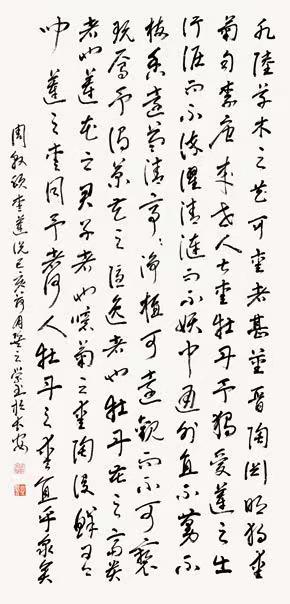 水陸草木之花可愛者甚蕃晉陶淵明獨愛
菊自李唐來世人甚愛牡丹予獨愛蓮之出
淤泥而不染濯清漣而不妖中通外直不蔓不
枝香遠益清亭亭淨植可遠觀而不可褻
玩焉予謂菊花之隱逸者也牡丹花之富貴
者也蓮花之君子者也噫菊之愛陶後鮮有
聞蓮之愛同予者何人牡丹之愛宜乎眾矣
周敦頤愛蓮說己亥 月 之榮書於長安